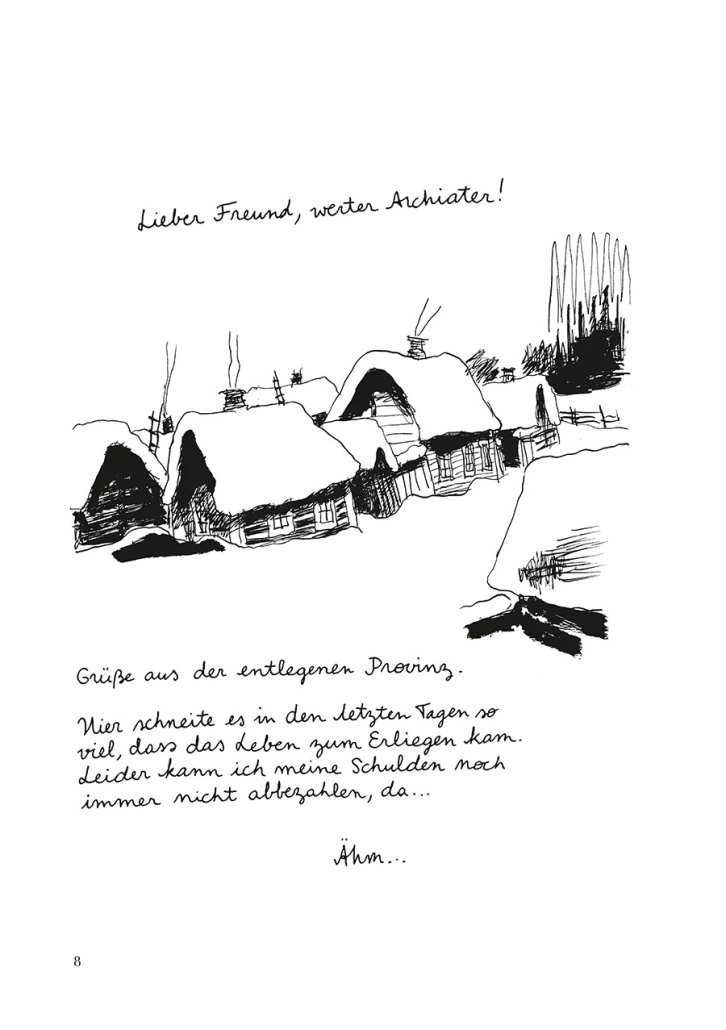 Lieber Freund, werter Archiater!
Grüße aus der entlegenen Provinz.
Hier schneite es in den letzten Tagen so
viel, dass das Leben zum Erliegen kam.
Leider kann ich meine Schulden noch
immer nicht abbezahlen, da...
Ähm...
8